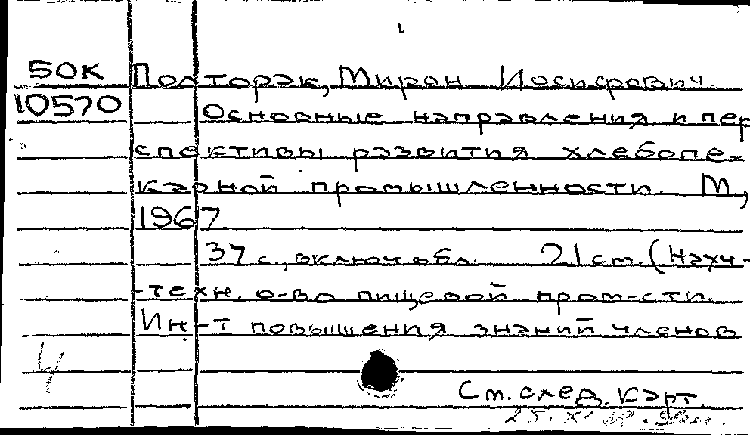 50К Полторак, Мирон Иосифович
10570 Основные направления и пер
спективы развития хлебопе-
карной промышленности. М,
1967
37 с., включ обл. 21 см. (Науч-
-техн. о-во пищевой пром-сти.
Ин-т повышения знаний членов
См. след. карт.